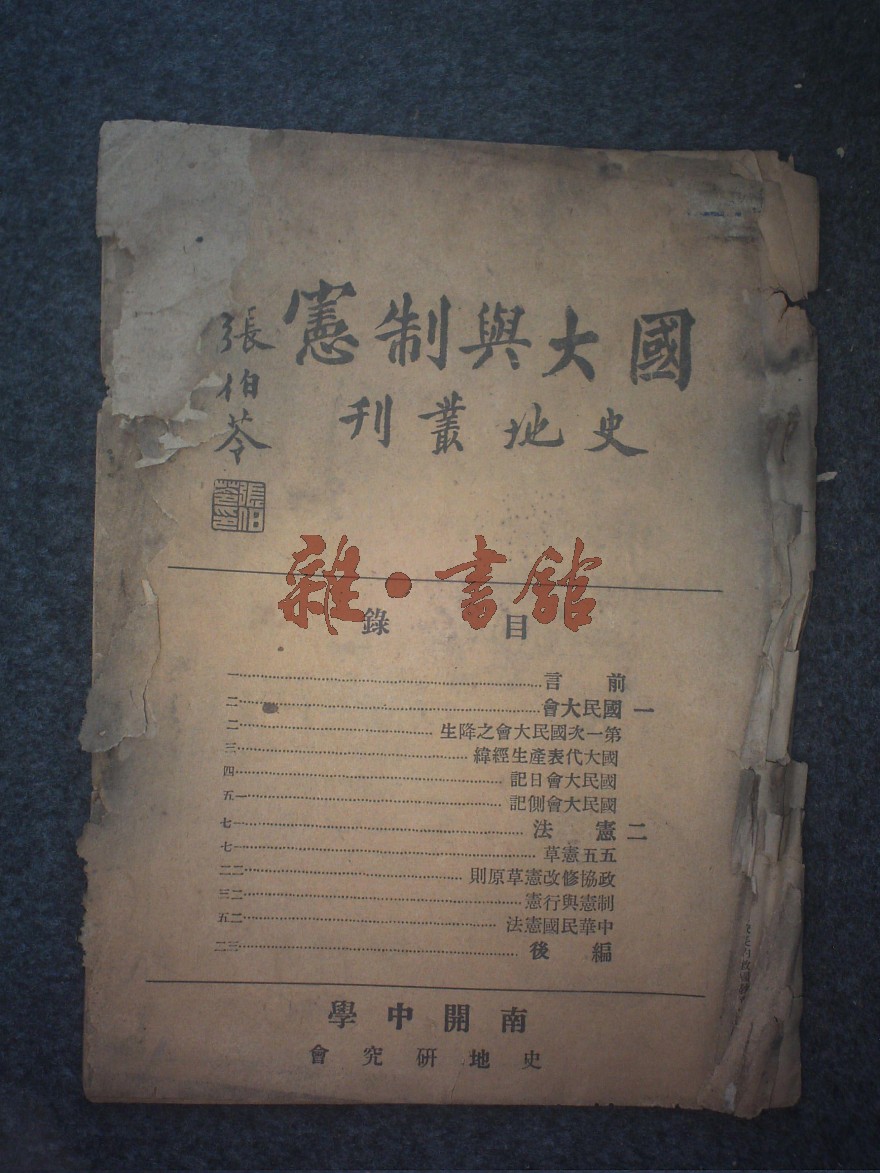 國大與制憲
史地叢刊
張伯苓
張伯苓印
雜·書館
目錄
前言……一
一 國民大會……二
第一次國民大會之降生……二
國大代表產生經緯……三
國民大會日記……四
國民大會側記……一五
二 憲法……一七
五五憲草……一七
政協修改憲草原則……二二
制憲與行憲……二三
中華民國憲法……二五
編後……三二
南開中學
史地研究會